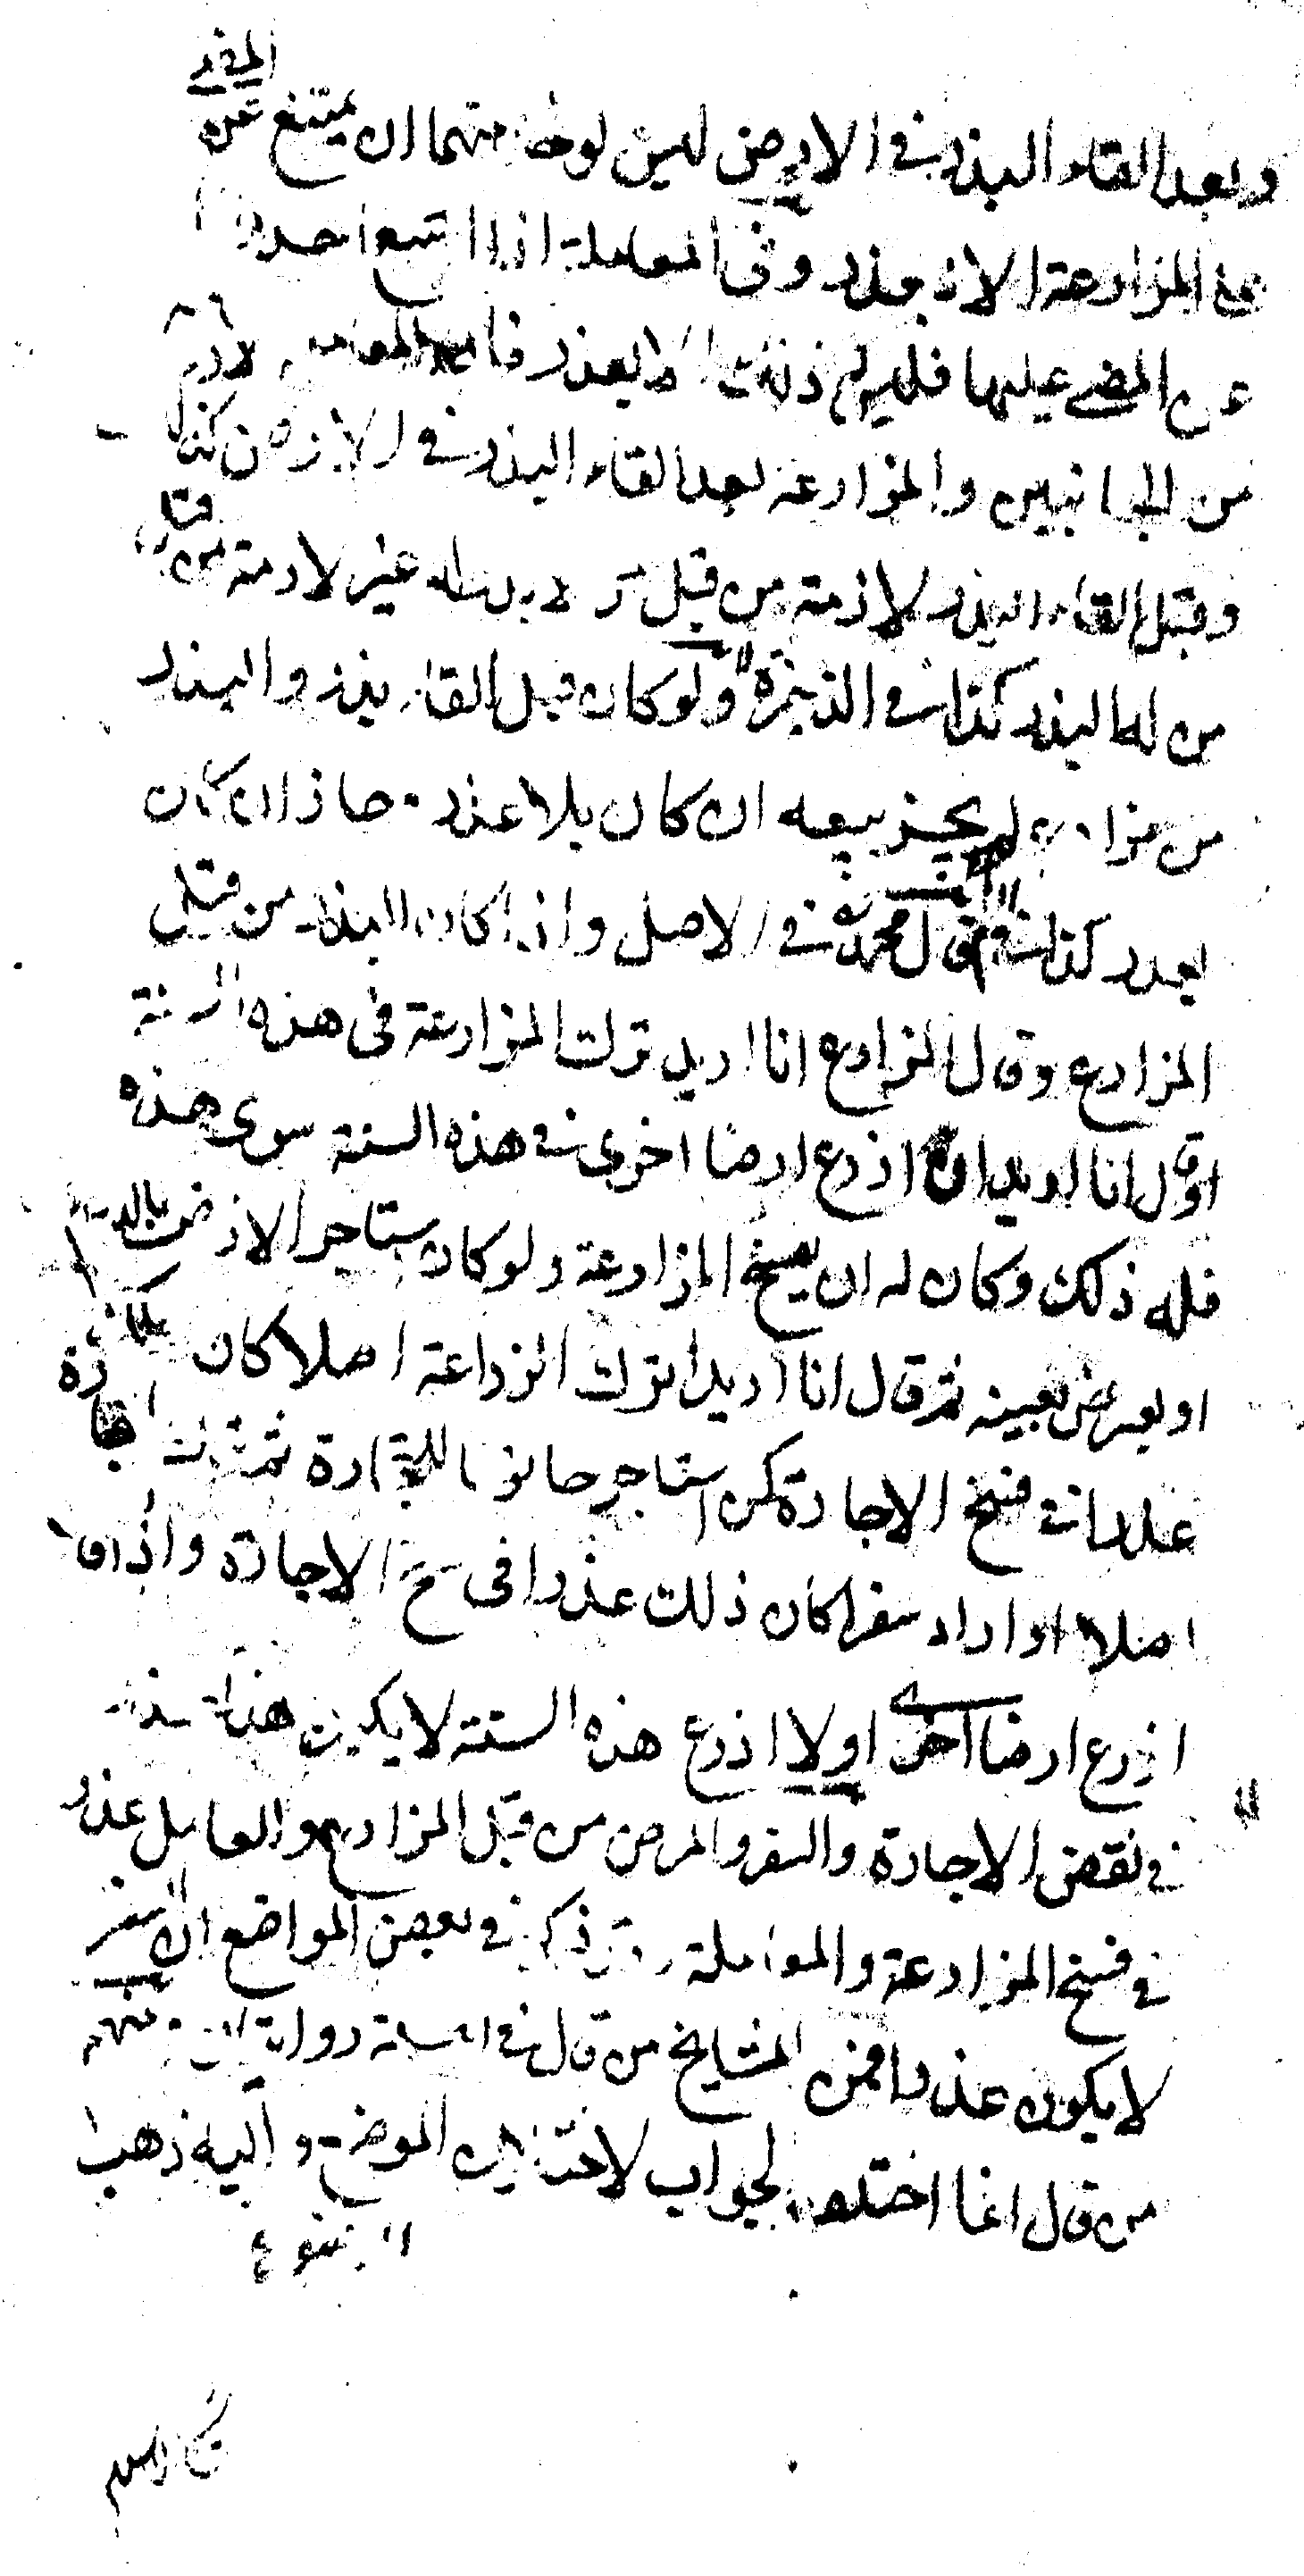 المضي
وبعد القاء البذر في الارض ليس لواحد منهما ان يمتنع عن
على المزارعة الا بعذر وفي المعاملة اذا امتنع احدهما
عن المضي عليها فليس له ذلك الا بعذر فان المعاملة لازمة
من الجانبين والمزارعة بعد القاء البذر في الارض كذلك
وقبل القاء البذر لازمة من قبل من لا بذر له غير لازمة من قبل
من له البذر كذا في الذخيرة ولو كان قبل القاء البذر والبذر
من مزارع لم يجز بيعه ان كان بلا عذر جاز ان كان
بعذر كذا في قال محمد في الاصل واذا كان البذر من قبل
المزارع وقال المزارع انا اريد ترك المزارعة في هذه السنة
او قال انا اريد ان ازرع ارضا اخرى في هذه السنة سوى هذه
فله ذلك وكان له ان يفسخ المزارعة ولو كان استاجر الارض بالدراهم
او بعرض بعينه ثم قال انا اريد ترك الزراعة اصلا كان
عذرا في فسخ الاجارة كمن استاجر حانوتا للتجارة ثم ترك التجارة
اصلا او اراد سفرا كان ذلك عذرا في فسخ الاجارة واذا قال
ازرع ارضا اخرى او لا ازرع هذه السنة لا يكون هذا عذرا
في نقض الاجارة والسفر والمرض من قبل المزارع والعامل عذر
في فسخ المزارعة والمعاملة وقد ذكر في بعض المواضع ان السفر
لا يكون عذرا فمن المشايخ من قال في المسئلة روايتان ومنهم
من قال انما اختلف الجواب لاختلاف الموضوع واليه ذهب